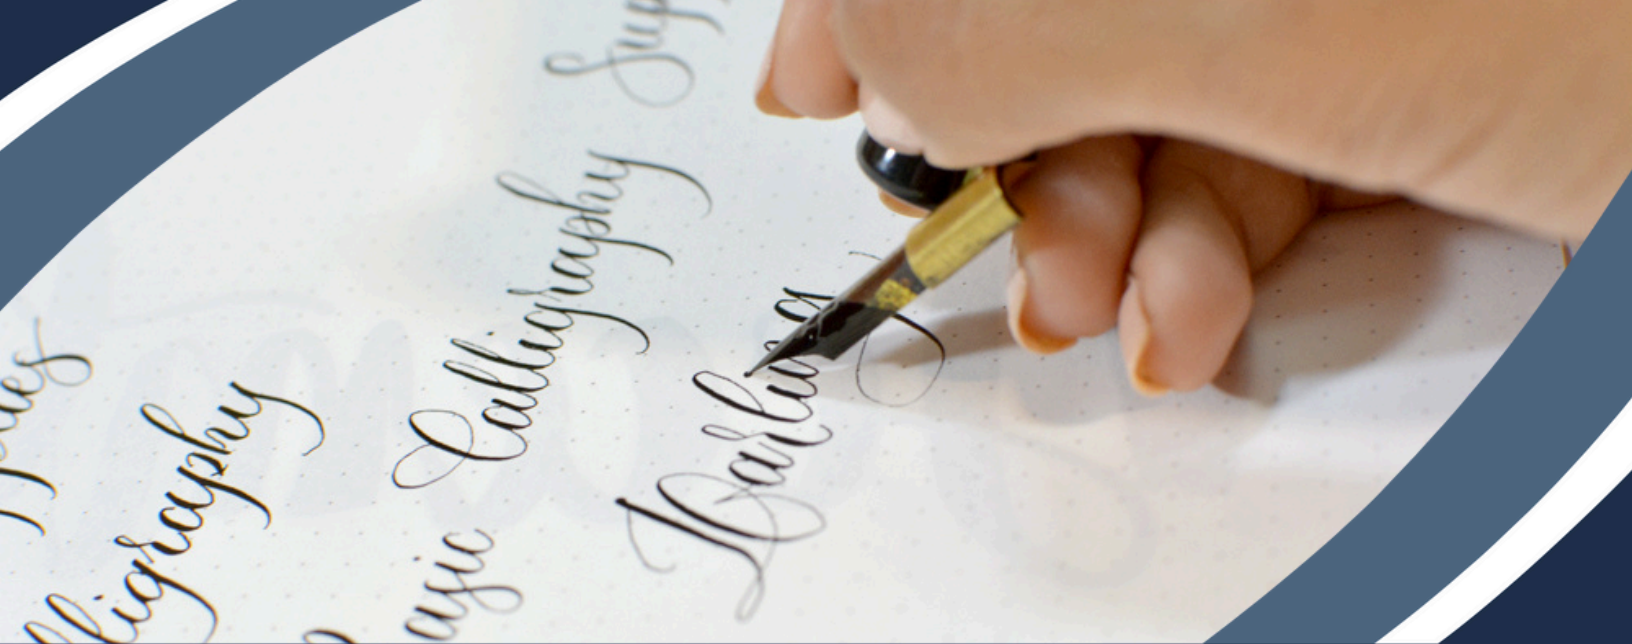 plies
lligraphy
asic Calligraphy Sup
Darling